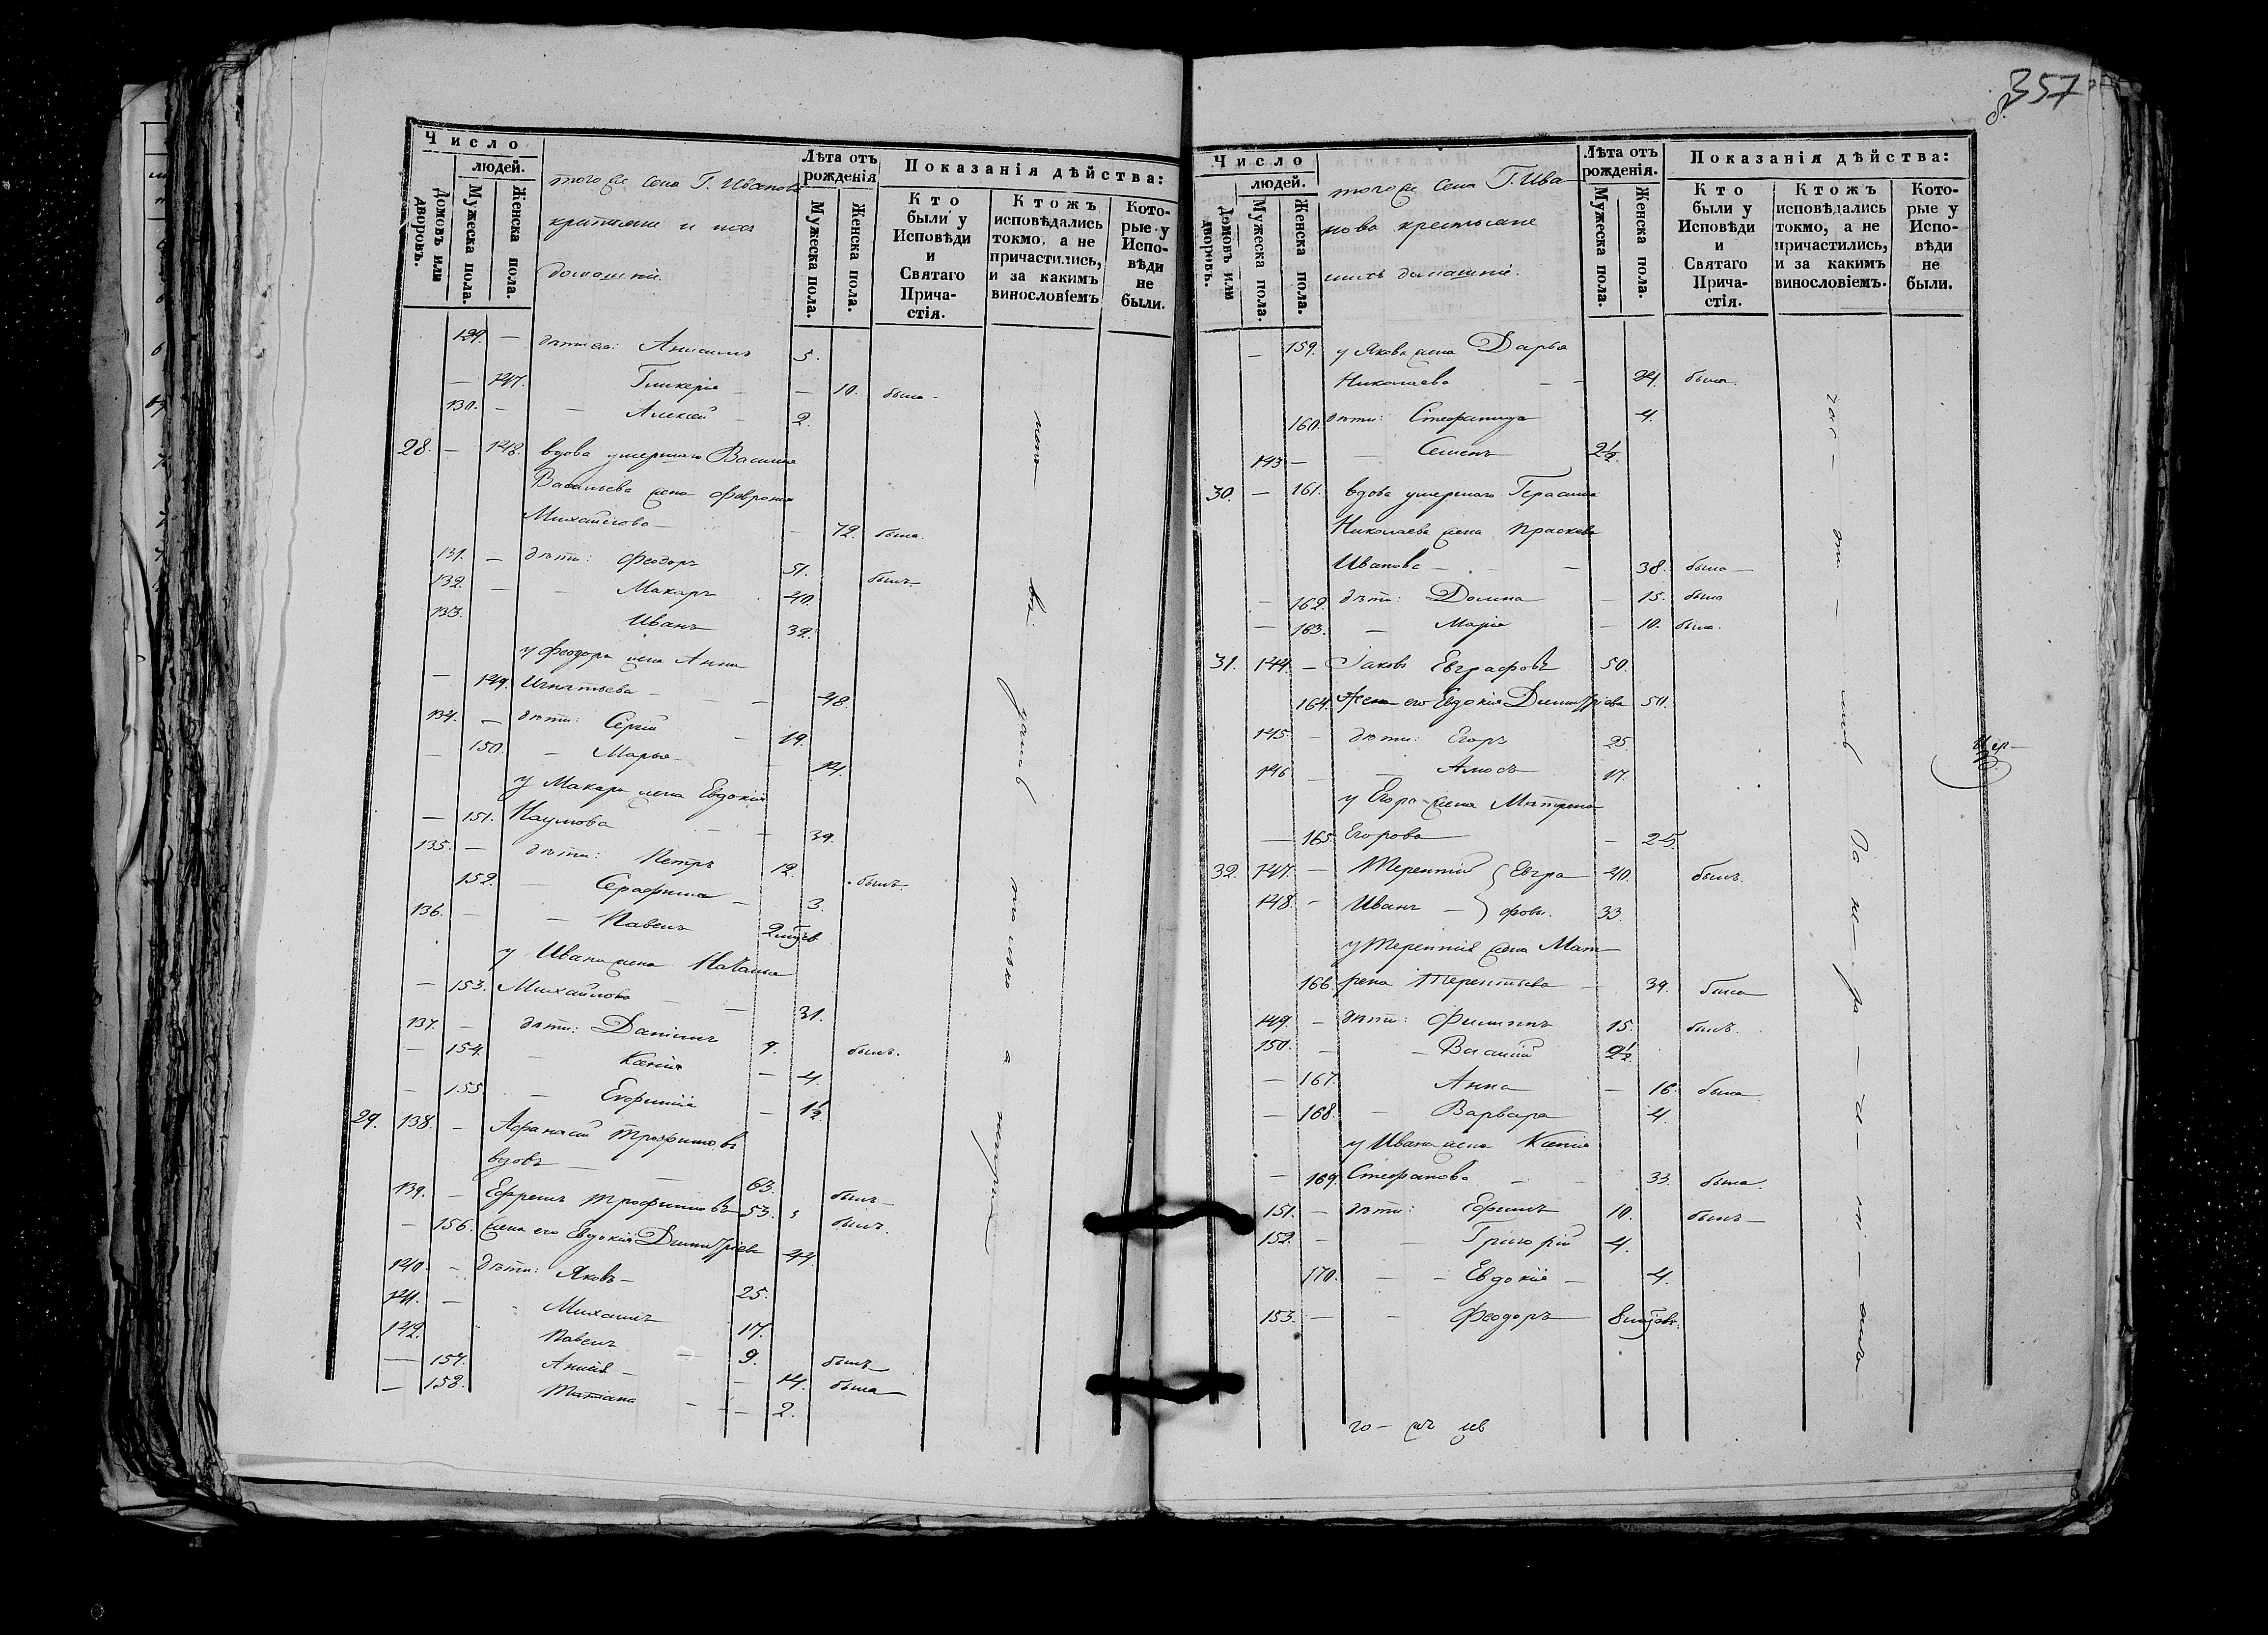 357
Число
людей.
Домовъ или дворовъ.
Мужеска пола.
Женска пола.
того же села Г. Иванова
крестьяне и ихъ
домашніе.
Лѣта отъ рожденія
Мужеска пола.
Женска пола.
Показанія дѣйства:
Кто были у Исповѣди и Святаго Причастія.
Ктожъ исповѣдались токмо, а не причастились, и за какимъ винословіемъ
Которые у Исповѣди не были.
129. — дѣти ея: Анисимъ 5.
— 147. Гликерія — — 10. была
130. — — Алексѣй 2.
28. — 148. вдова умершаго Василья
Васильева жена Феврония
Михайлова — — 72. была.
131. — дѣти: Феодоръ 51. былъ
132. — — Макаръ 40.
133. Иванъ 32.
у Феодора жена Анна
— 149. Игнатьева — — 48.
134. — дѣти: Сергій — 19.
— 150. — Марья — — 14.
у Макара жена Евдокія
— 151. Наумова — — 39.
135. — дѣти: Петръ 12. былъ.
152. — Серафима — 3.
136. — — Павелъ 2
у Ивана жена Наталья
— 153. Михайлова — — 31.
137. — дѣти: Даніилъ 9. былъ.
— 154. — Ксенія — 4.
— 155. — Евфимія — 1½
29. 138. — Афанасій Трофимовъ
вдовъ — — 63. былъ
139. — Ефремъ Трофимовъ 53. былъ.
— 156. жена его Евдокія Димитріева 44.
140. — дѣти: Яковъ — 25.
141. — - Михаилъ 17.
142. Павелъ 9. былъ
— 157. Анисія — — 14. была
— 158. Татіана — — 2.
Число
людей.
Домовъ или дворовъ.
Мужеска пола.
Женска пола.
того же села Г. Ива
нова крестьяне
ихъ домашніе.
Лѣта отъ рожденія.
Мужеска пола.
Женска пола.
Показанія дѣйства:
Кто были у Исповѣди и Святаго Причастія.
Ктожъ исповѣдались токмо, а не причастились, и за какимъ винословіемъ.
Которые у Исповѣди не были.
— 159. у Якова жена Дарья
Николаева — — 24. была.
160. дѣти: Стефанида 4.
143 — — Семенъ 2½.
30. — 161. вдова умершаго Герасима
Николаева жена Праскева
Иванова — — — 38. была —
— 162. дѣти: Домна — 15. была
— 163. — Марія — 10. была.
31. 144. — Іаковъ Евграфовъ 50.
164. жена его Евдокія Димитріева 50.
145. — дѣти: Егоръ 25.
146. — — Амосъ 17.
у Егора жена Матрена
— 165. Егорова — 25.
32. 147. — Терентій } Евгра 40. былъ.
148. — Иванъ — } фовы. 33.
у Терентія жена Мат
166. рена Терентьева — 39. была
149. — дѣти: Филиппъ 15. былъ.
150. — — Василій 2½
— 167. Анна — 16. была
— 168. — Варвара — 4.
у Ивана жена Ксенія
— 169. Стефанова — — 33. была.
151. — дѣти: Ефимъ 10. былъ —
152. — — Григорій 4.
170. — — Евдокія — 4.
153. — — Феодоръ 8